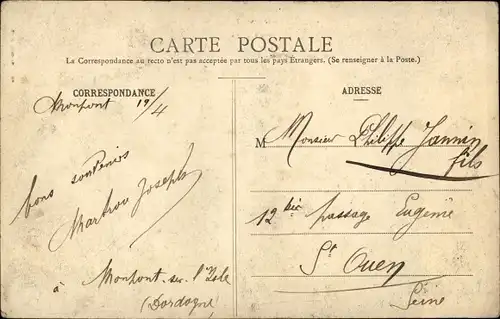 CARTE POSTALE
La Correspondance au recto n'est pas acceptée par tous les pays Étrangers. (Se renseigner à la Poste.)
CORRESPONDANCE
Monpont 19/4
bons souvenirs
Joseph
à Monpont-sur-l'Isle
(Dordogne)
ADRESSE
M Monsieur Philippe Jannin
fils
12 bis passage Eugénie
St Ouen
Seine